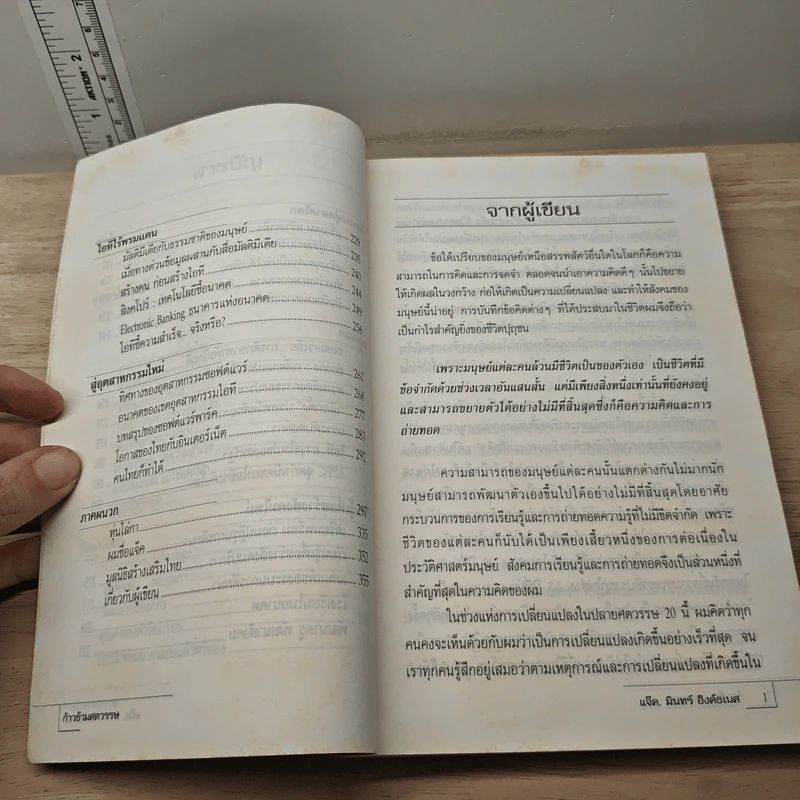 ไอทีไร้พรมแดน
มัลติมีเดียกับธรรมชาติของมนุษย์ 229
เมื่อทางด่วนข้อมูลผสานกับสื่อมัลติมีเดีย 235
สร้างคน ก่อนสร้างไอที 240
สิงคโปร์ : เทคโนโลยีชี้อนาคต 244
Electronic Banking ธนาคารแห่งอนาคต 249
ไอทีชี้ความสำเร็จ... จริงหรือ? 256
สู่อุตสาหกรรมใหม่
ทิศทางของอุตสาหกรรมซอฟต์แวร์ 262
อนาคตของเขตอุตสาหกรรมไอที 268
บทสรุปของซอฟต์แวร์พาร์ค 277
โอกาสของไทยกับอินเตอร์เน็ต 283
คนไทยก็ทำได้ 292
ภาคผนวก 297
หุ่นไล่กา 335
ผมชื่อแจ็ค 352
มูลนิธิสร้างเสริมไทย 355
เกี่ยวกับผู้เขียน
ก้าวข้ามศตวรรษ
จากผู้เขียน
ข้อได้เปรียบของมนุษย์เหนือสรรพสัตว์อื่นใดในโลกก็คือความ
สามารถในการคิดและการจดจำ ตลอดจนนำเอาความคิดดีๆ นั้นไปขยาย
ให้เกิดผลในวงกว้าง ก่อให้เกิดเป็นความเปลี่ยนแปลง และทำให้สังคมของ
มนุษย์นี้น่าอยู่ การบันทึกข้อคิดต่างๆ ที่ได้ประสบมาในชีวิตผมจึงถือว่า
เป็นกำไรสำคัญยิ่งของชีวิตปุถุชน
เพราะมนุษย์แต่ละคนล้วนมีชีวิตเป็นของตัวเอง เป็นชีวิตที่มี
ข้อจำกัดด้วยช่วงเวลาอันแสนสั้น แต่มีเพียงสิ่งหนึ่งเท่านั้นที่ยังคงอยู่
และสามารถขยายตัวได้อย่างไม่มีที่สิ้นสุดซึ่งก็คือความคิดและการ
ถ่ายทอด
ความสามารถของมนุษย์แต่ละคนนั้นแตกต่างกันไม่มากนัก
มนุษย์สามารถพัฒนาตัวเองขึ้นไปได้อย่างไม่มีที่สิ้นสุดโดยอาศัย
กระบวนการของการเรียนรู้และการถ่ายทอดความรู้ที่ไม่มีขีดจำกัด เพราะ
ชีวิตของแต่ละคนก็นับได้เป็นเพียงเสี้ยวหนึ่งของการต่อเนื่องใน
ประวัติศาสตร์มนุษย์ สังคมการเรียนรู้และการถ่ายทอดจึงเป็นส่วนหนึ่งที่
สำคัญที่สุดในความคิดของผม
ในช่วงแห่งการเปลี่ยนแปลงในปลายศตวรรษ 20 นี้ ผมคิดว่าทุก
คนคงจะเห็นด้วยกับผมว่าเป็นการเปลี่ยนแปลงเกิดขึ้นอย่างเร็วที่สุด จน
เราทุกคนรู้สึกอยู่เสมอว่าตามเหตุการณ์และการเปลี่ยนแปลงที่เกิดขึ้นใน
แจ๊ค. มินทร์ อิงค์ธเนศ 1